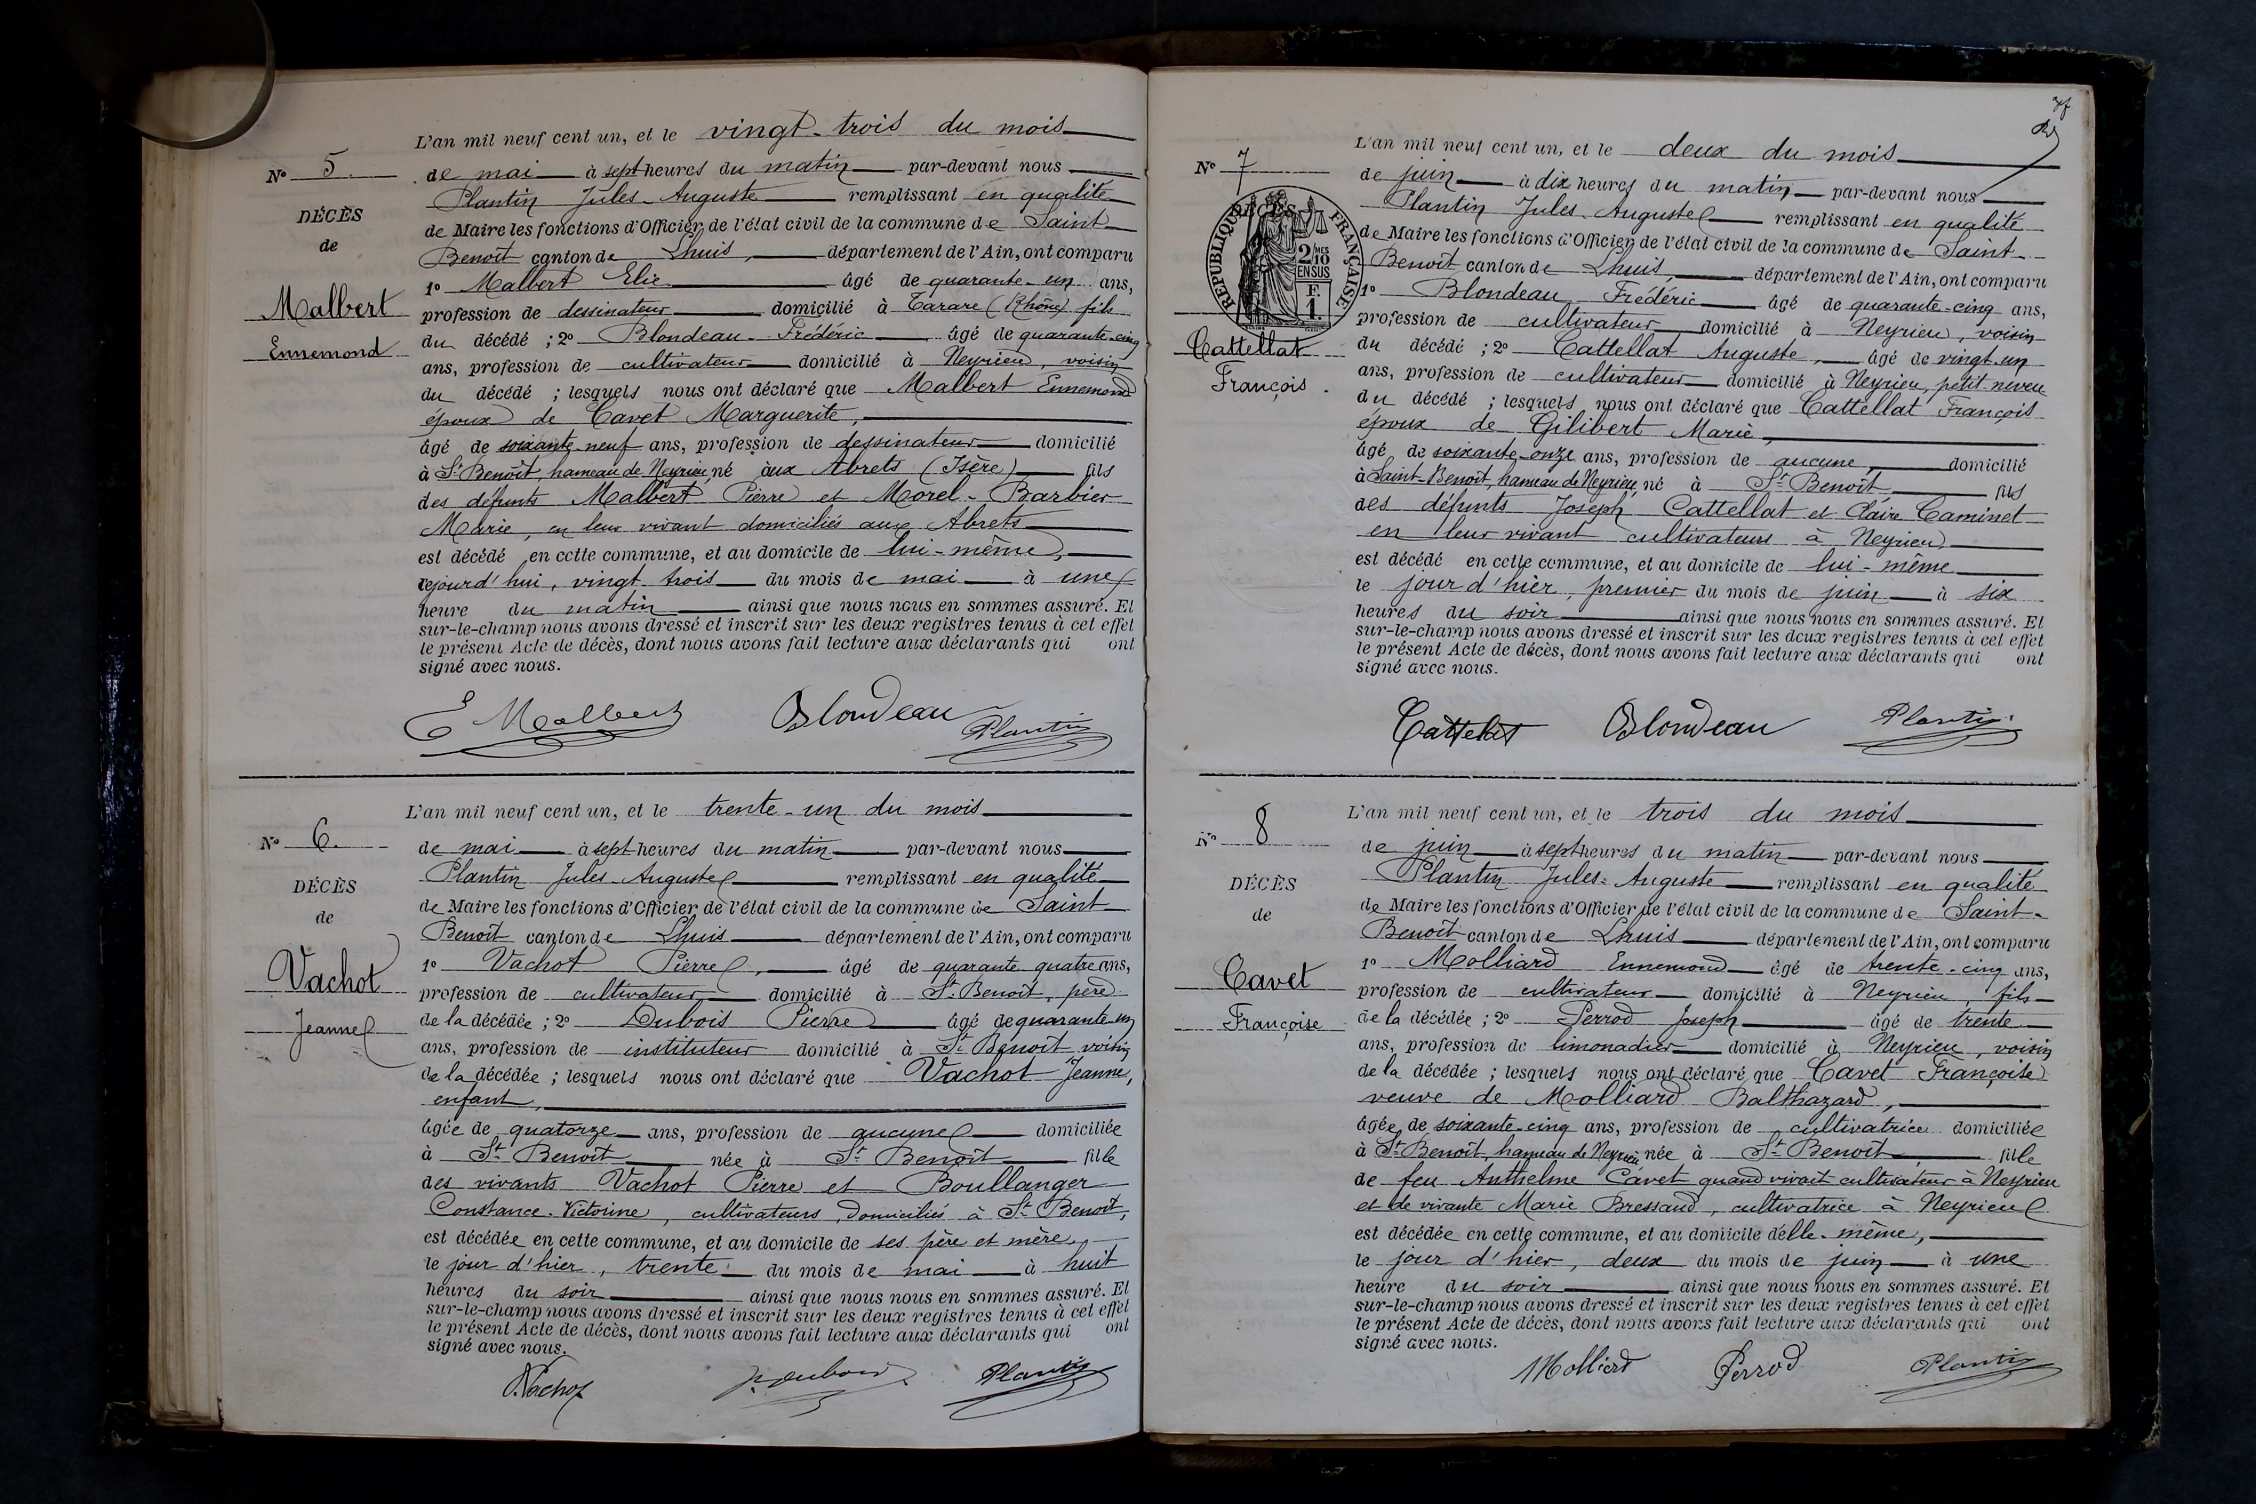 L'an mil neuf cent un, et le vingt-trois du mois
N° 5.
de mai à sept heures du matin par-devant nous
Plantin Jules-Auguste remplissant en qualité
DÉCÈS
de Maire les fonctions d'Officier de l'état civil de la commune de Saint
de
Benoît canton de Lhuis, département de l'Ain, ont comparu
1° Malbert Elie âgé de quarante-un ans,
Malbert
profession de dessinateur domicilié à Tarare (Rhône) fils
du décédé ; 2° Blondeau Frédéric âgé de quarante-cinq
Ennemond
ans, profession de cultivateur domicilié à Neyrieu, voisin
du décédé ; lesquels nous ont déclaré que Malbert Ennemond
époux de Cavet Marguerite,
âgé de soixante-neuf ans, profession de dessinateur domicilié
à St Benoît, hameau de Neyrieu, né aux Abrets (Isère) fils
des défunts Malbert Pierre et Morel-Barbier
Marie, en leur vivant domiciliés aux Abrets
est décédé en cette commune, et au domicile de lui-même,
cejourd'hui, vingt-trois du mois de mai à une
heure du matin ainsi que nous nous en sommes assuré. Et
sur-le-champ nous avons dressé et inscrit sur les deux registres tenus à cet effet
le présent Acte de décès, dont nous avons fait lecture aux déclarants qui ont
signé avec nous.
E Malbert Blondeau Plantin
L'an mil neuf cent un, et le trente-un du mois
N° 6.
de mai à sept heures du matin par-devant nous
Plantin Jules-Auguste remplissant en qualité
DÉCÈS
de Maire les fonctions d'Officier de l'état civil de la commune de Saint
de
Benoît canton de Lhuis département de l'Ain, ont comparu
1° Vachot Pierre, âgé de quarante-quatre ans,
Vachot
profession de cultivateur domicilié à St Benoît, père
Jeanne
de la décédée ; 2° Dubois Pierre âgé de quarante-un
ans, profession de instituteur domicilié à St Benoît voisin
de la décédée ; lesquels nous ont déclaré que Vachot Jeanne,
enfant,
âgée de quatorze ans, profession de aucune domiciliée
à St Benoît née à St Benoît fille
des vivants Vachot Pierre et Boullanger
Constance-Victorine, cultivateurs, domiciliés à St Benoît,
est décédée en cette commune, et au domicile de ses père et mère,
le jour d'hier, trente du mois de mai à huit
heures du soir ainsi que nous nous en sommes assuré. Et
sur-le-champ nous avons dressé et inscrit sur les deux registres tenus à cet effet
le présent Acte de décès, dont nous avons fait lecture aux déclarants qui ont
signé avec nous.
P. Vachot P. Dubois Plantin
L'an mil neuf cent un, et le deux du mois
N° 7
de juin à dix heures du matin par-devant nous
Plantin Jules-Auguste remplissant en qualité
DÉCÈS
RÉPUBLIQUE FRANÇAISE
2/10 MES EN SUS
F. 1.
de Maire les fonctions d'Officier de l'état civil de la commune de Saint-
Benoît canton de Lhuis, département de l'Ain, ont comparu
1° Blondeau Frédéric âgé de quarante-cinq ans,
profession de cultivateur domicilié à Neyrieu, voisin
Cattellat
du décédé ; 2° Cattellat Auguste, âgé de vingt-un
François.
ans, profession de cultivateur domicilié à Neyrieu, petit-neveu
du décédé ; lesquels nous ont déclaré que Cattellat François
époux de Gilibert Marie,
âgé de soixante-onze ans, profession de aucune, domicilié
à Saint-Benoît, hameau de Neyrieu, né à St Benoît fils
des défunts Joseph Cattellat et Claire Caminet
en leur vivant cultivateurs à Neyrieu
est décédé en cette commune, et au domicile de lui-même
le jour d'hier, premier du mois de juin à six
heures du soir ainsi que nous nous en sommes assuré. Et
sur-le-champ nous avons dressé et inscrit sur les deux registres tenus à cet effet
le présent Acte de décès, dont nous avons fait lecture aux déclarants qui ont
signé avec nous.
Cattelat Blondeau Plantin
L'an mil neuf cent un, et le trois du mois
N° 8
de juin à sept heures du matin par-devant nous
Plantin Jules-Auguste remplissant en qualité
DÉCÈS
de Maire les fonctions d'Officier de l'état civil de la commune de Saint-
de
Benoît canton de Lhuis département de l'Ain, ont comparu
1° Molliard Ennemond âgé de trente-cinq ans,
Cavet
profession de cultivateur domicilié à Neyrieu, fils
Françoise
de la décédée ; 2° Perrod Joseph âgé de trente
ans, profession de limonadier domicilié à Neyrieu, voisin
de la décédée ; lesquels nous ont déclaré que Cavet Françoise
veuve de Molliard Balthazard,
âgée de soixante-cinq ans, profession de cultivatrice domiciliée
à St Benoît, hameau de Neyrieu née à St Benoît, fille
de feu Anthelme Cavet quand vivait cultivateur à Neyrieu
et de vivante Marie Bressand, cultivatrice à Neyrieu
est décédée en cette commune, et au domicile d'elle-même,
le jour d'hier, deux du mois de juin à une
heure du soir ainsi que nous nous en sommes assuré. Et
sur-le-champ nous avons dressé et inscrit sur les deux registres tenus à cet effet
le présent Acte de décès, dont nous avons fait lecture aux déclarants qui ont
signé avec nous.
Molliard Perrod Plantin